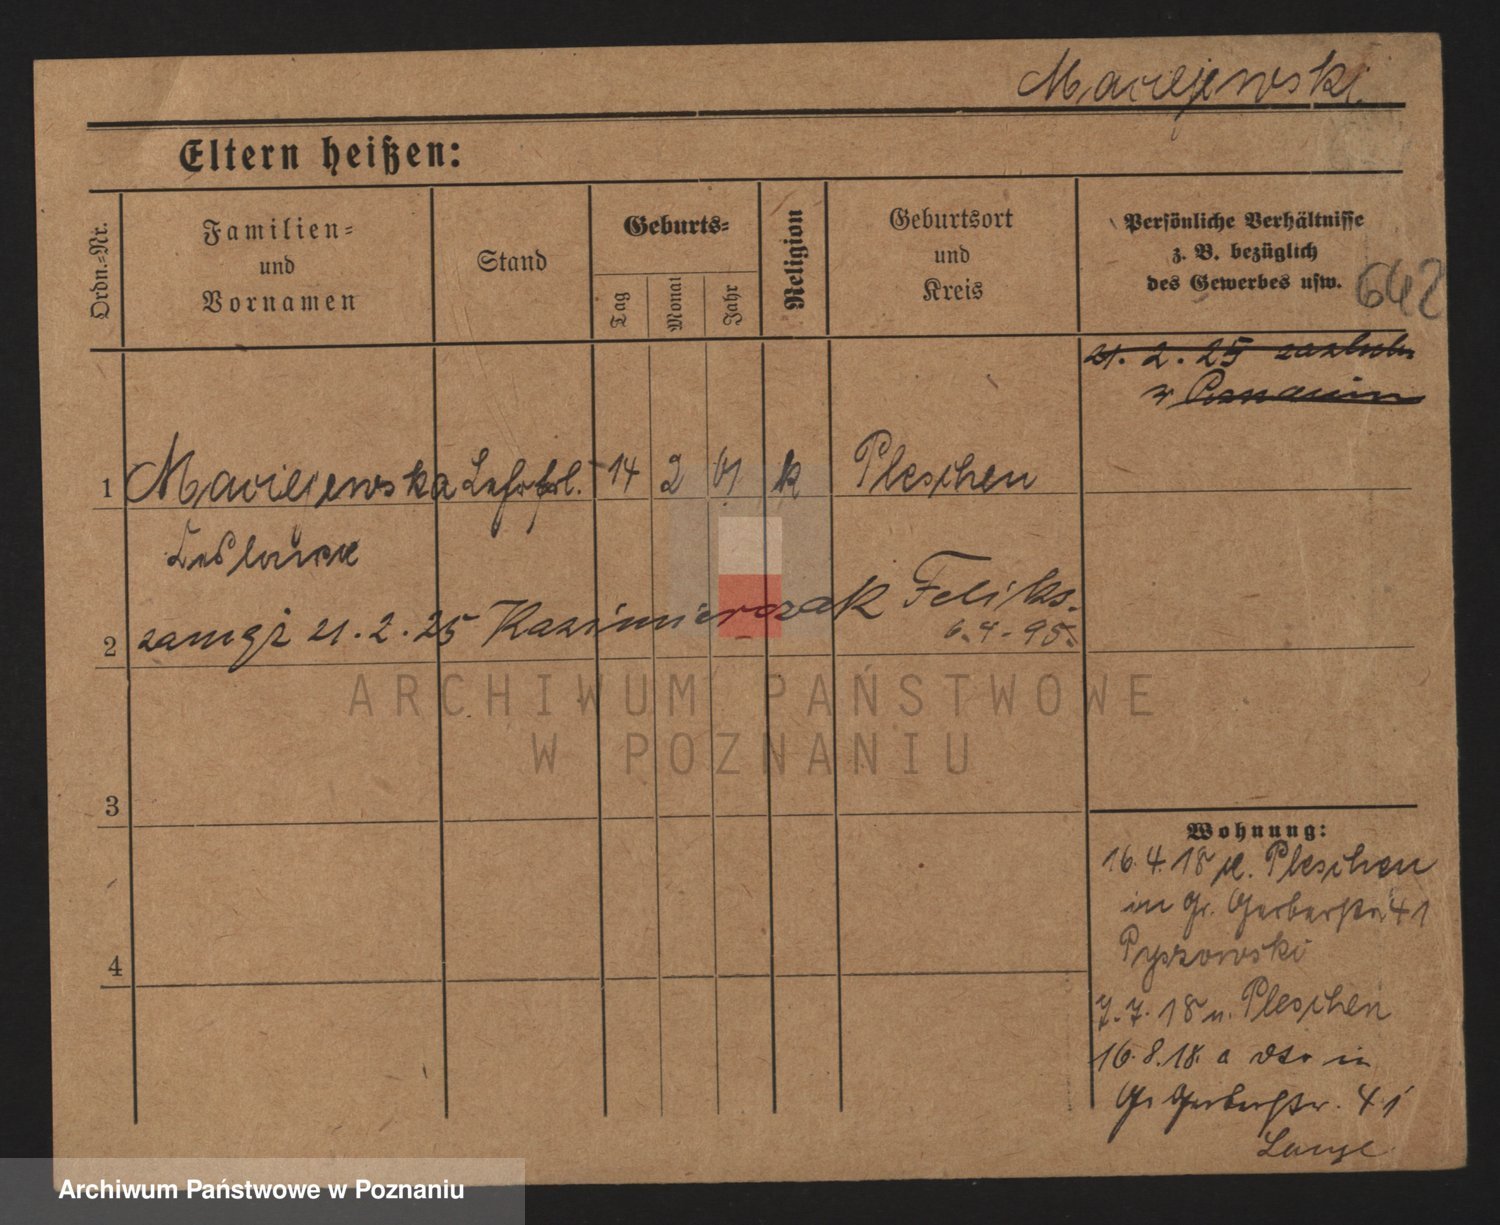 Maciejewski
Eltern heißen:
Ordn.=Nr.
Familien=
und
Vornamen
Stand
Geburts=
Tag
Monat
Jahr
Religion
Geburtsort
und
Kreis
Persönliche Verhältnisse
z. B. bezüglich
des Gewerbes usw.
642
21. 2. 25
w Poznaniu
1 Maciejewska Lehrfrl. 14 2 01 k Pleschen
2 zamęż 21.2.25 Kazimierczak Feliks.
6.4.95.
ARCHIWUM PAŃSTWOWE
W POZNANIU
3
4
Wohnung:
16.4.18 Pleschen
in Gr. Gerberstr. 41
Pyszowski
7.7.18 n. Pleschen
16.8.18. a dto in
Gr Gerberstr. 41
Lange
Archiwum Państwowe w Poznaniu